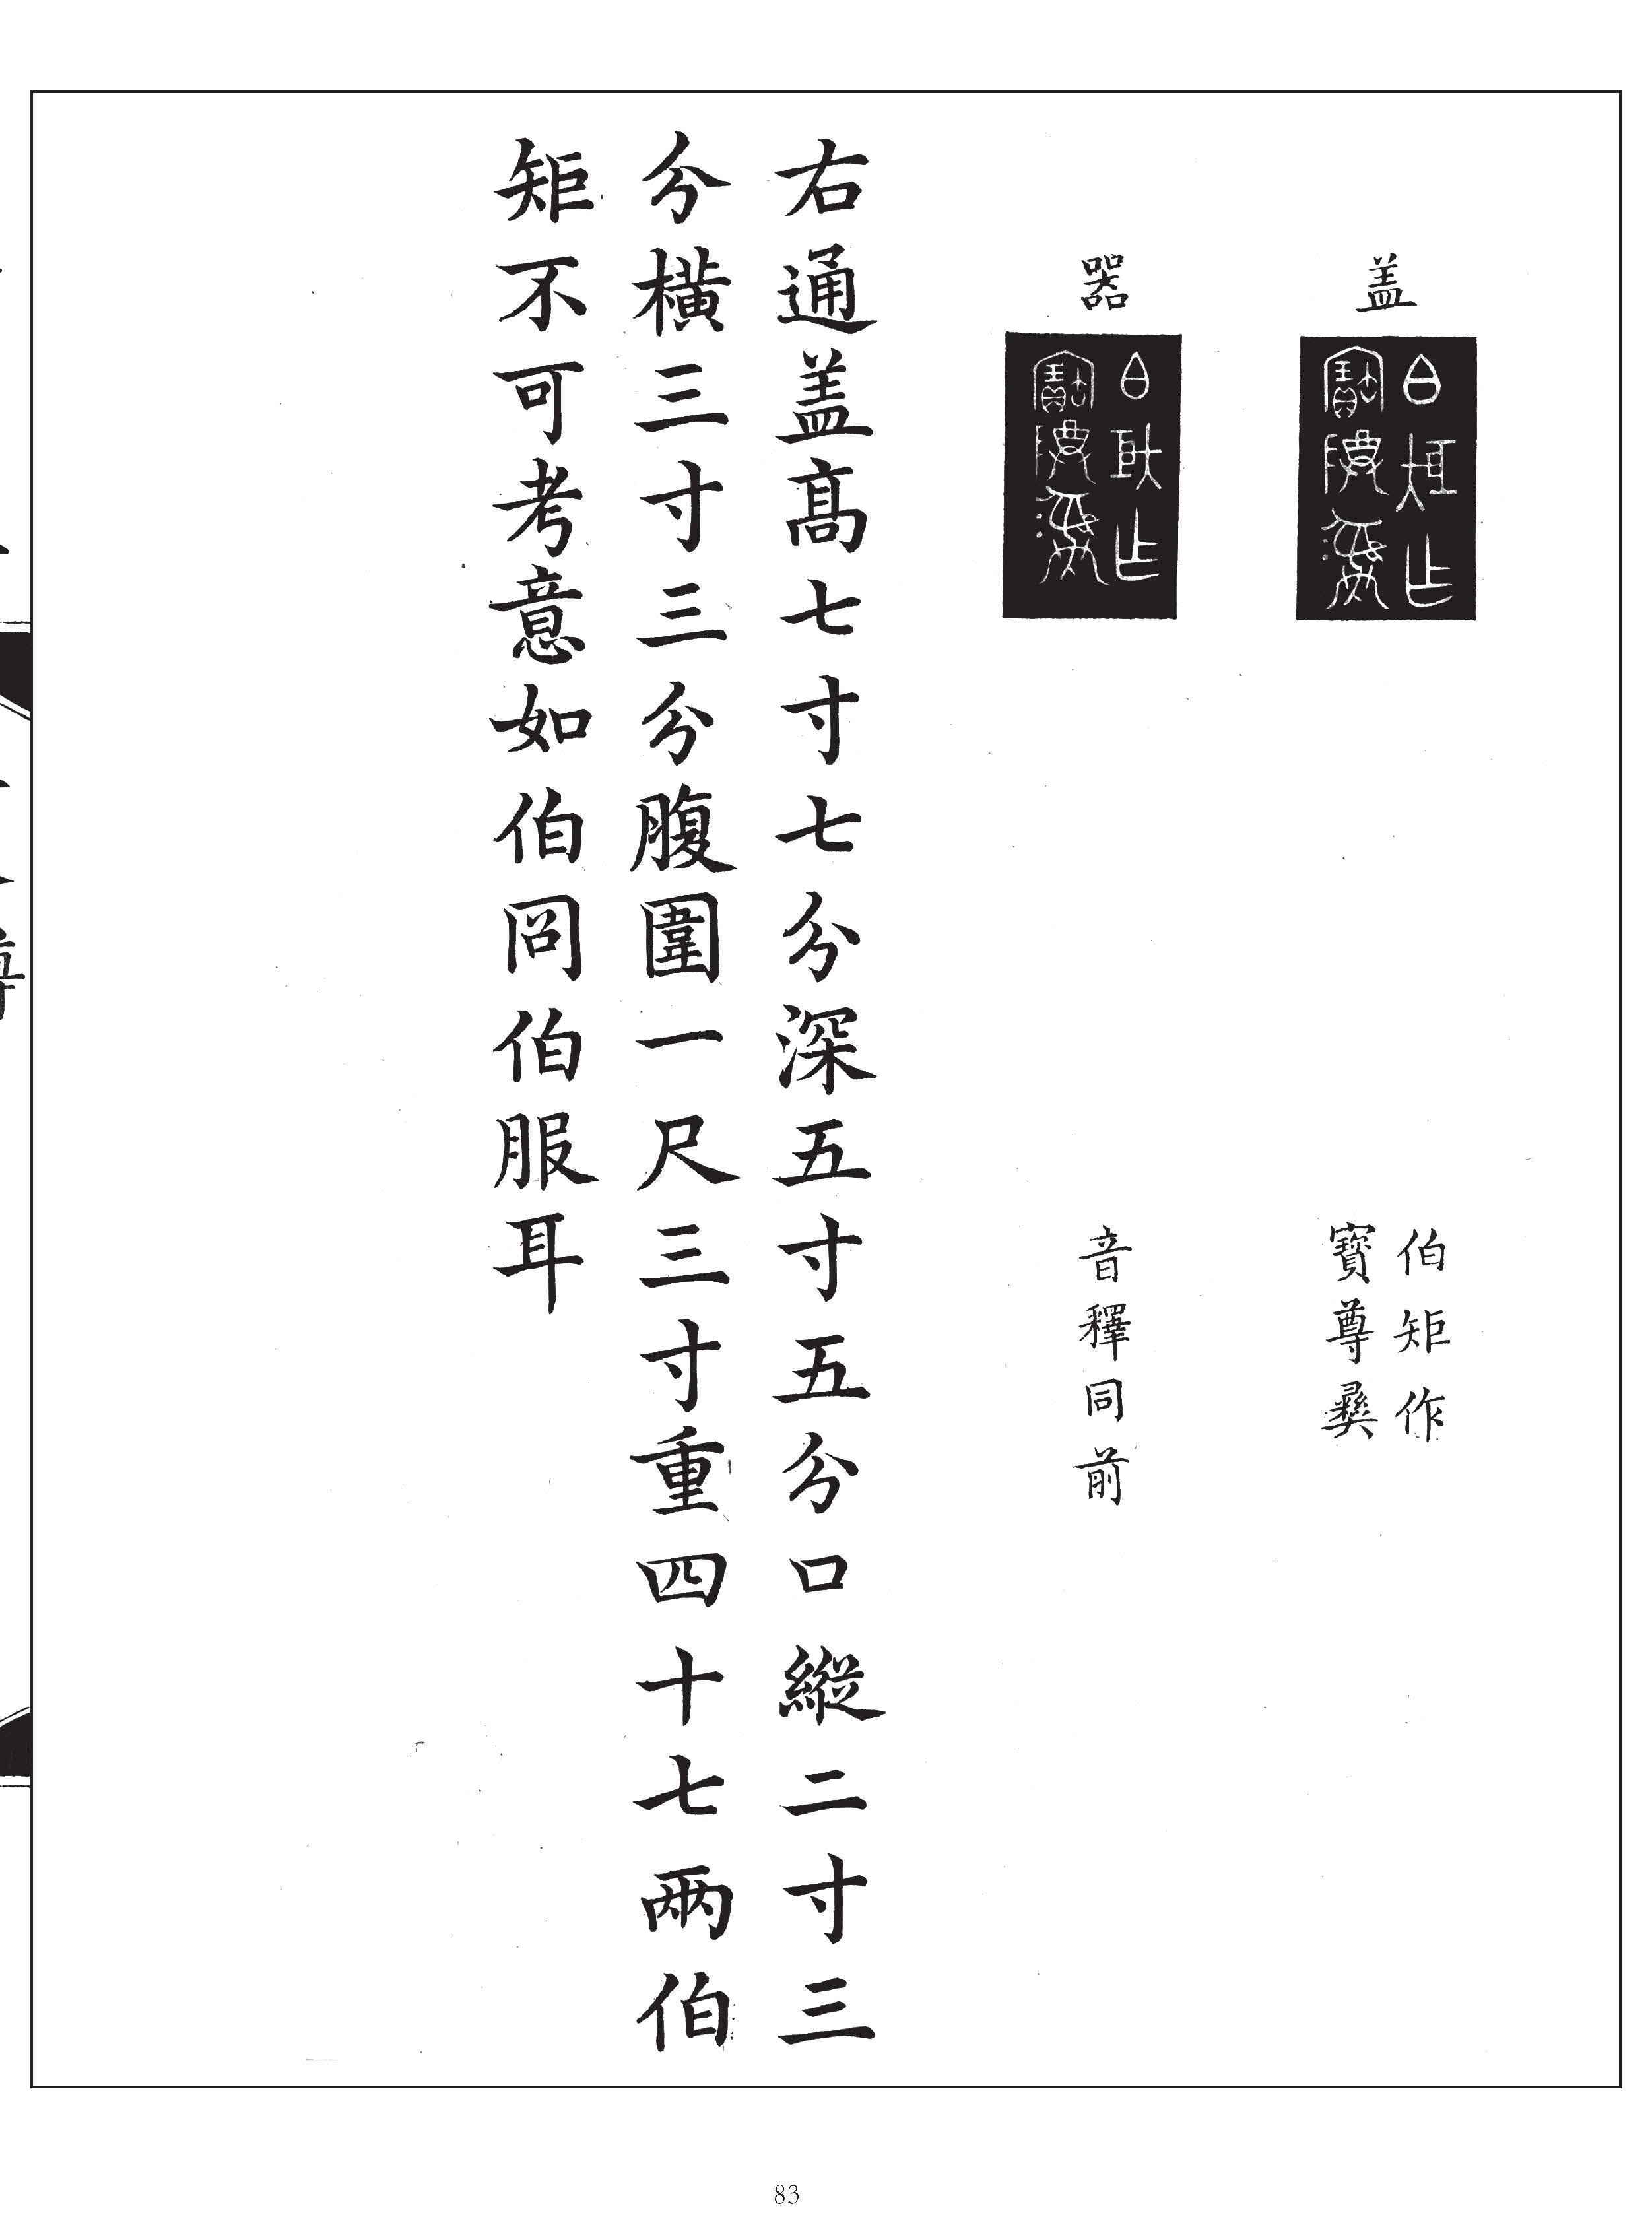 盖
伯矩作
寶尊彝
器
音釋同前
右通盖高七寸七分深五寸五分口縱二寸三
分橫三寸三分腹圍一尺三寸重四十七兩伯
矩不可考意如伯冏伯服耳
83